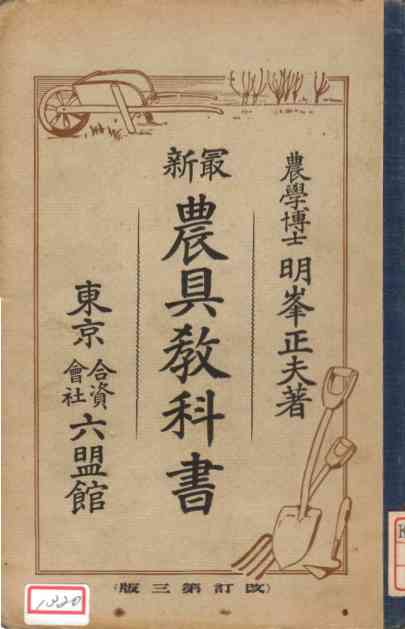 農學博士 明峯正夫著
最新
農具教科書
東京 合資會社 六盟館
(改訂第三版)
1320